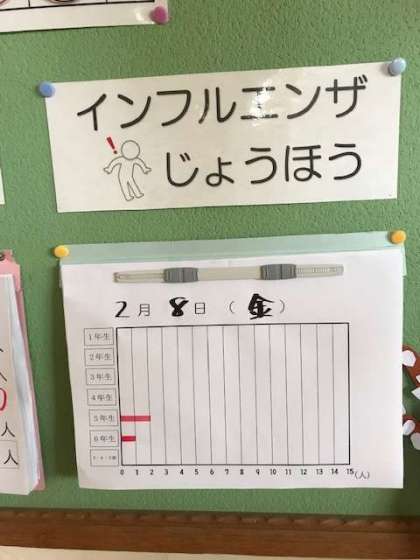 インフルエンザ
!
じょうほう
2月 8日 (金)
1年生
2年生
3年生
4年生
5年生
6年生
0 1 2 3 4 5 6 7 8 9 10 11 12 13 14 15 (人)
人
人